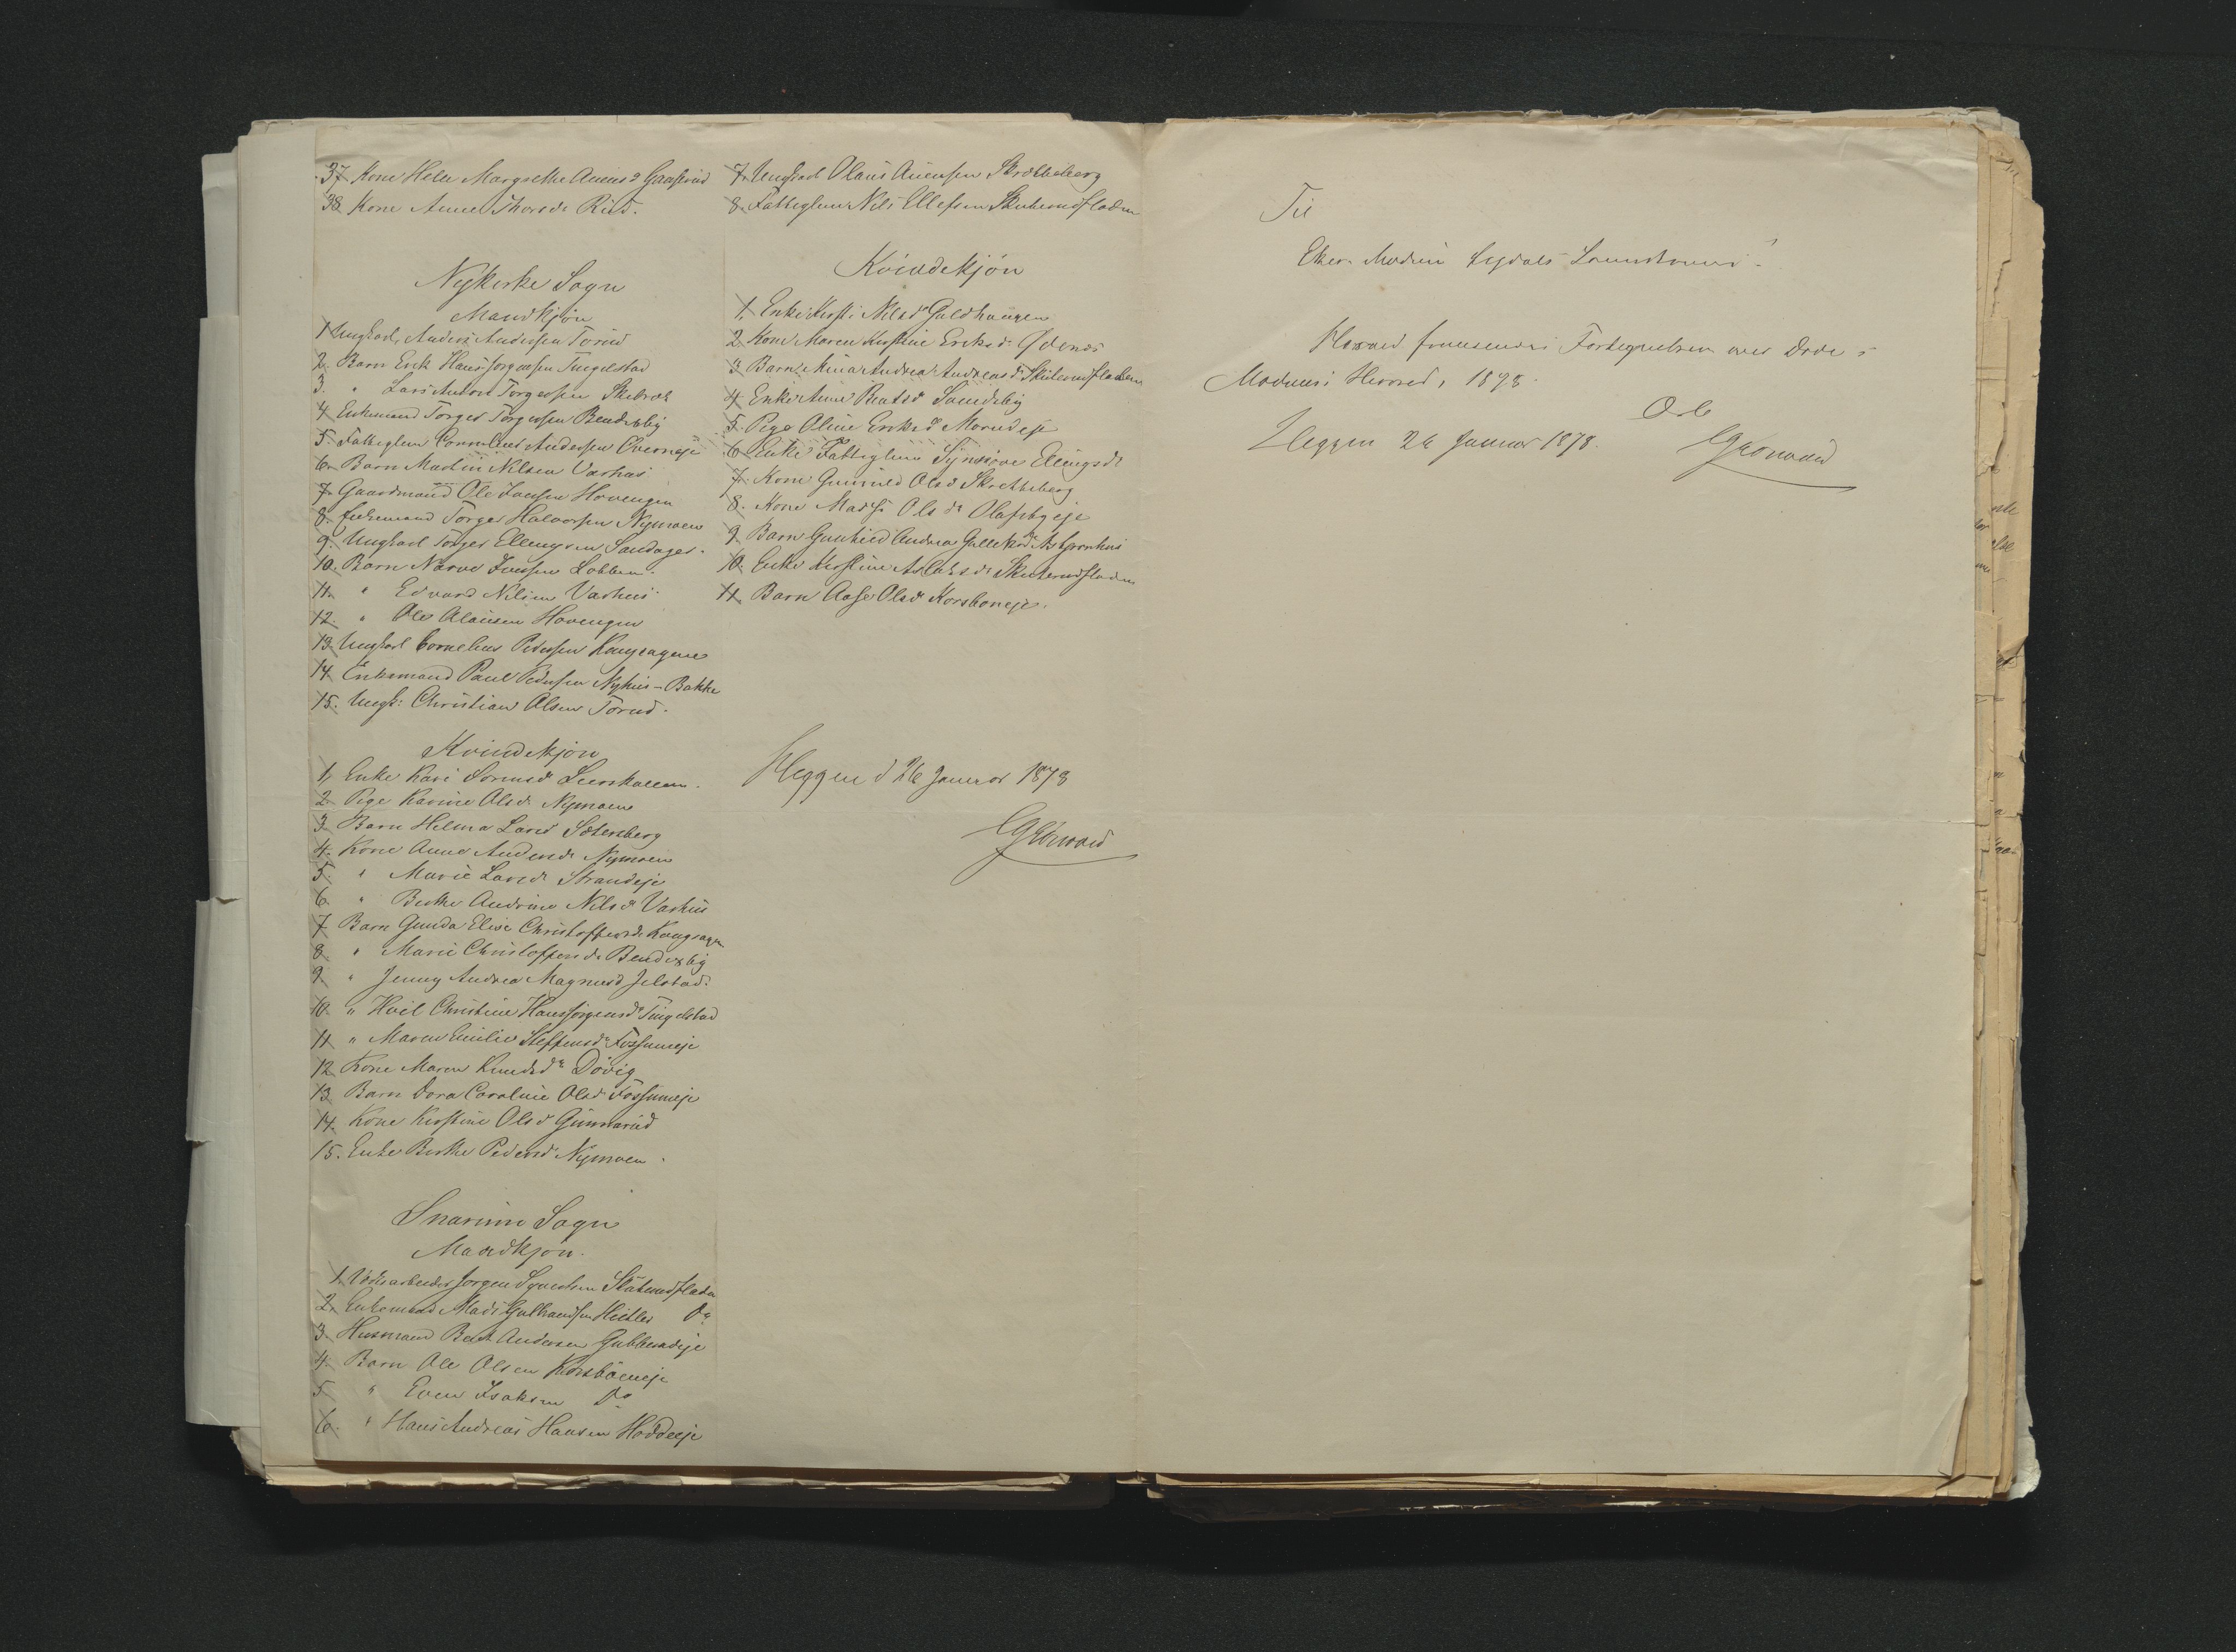 37 Kone Helle Margrethe Auensd Gaaserud
38 Kone Anne Thorsdr Rud.
Nykirke Sogn
Mandkjøn
1 Ungkarl Anders Andersen Torud
2. Barn Erik Hans Jørgensen Tingelstad
3 " Lars Anton Torgersen Skebræk
4 Enkemand Torger Torgersen Bendixby
5. Fattiglem Cornelius Andersen Overneje
6. Barn Martin Nilsen Varhus
7. Gaardmand Ole Hovengen
8. Enkemand Torger Halvorsen Nymoen
9. Ungkarl Torger Ellingsen Sandager.
10. Barn Narve Jensen Lobben.
11. " Edvard Nilsen Varhus
12. " Ole Olausen Hovengen
13 Ungkarl Cornelius Pedersen Kongsagene
14 Enkemand Paul Pedersen Nyhus-Bakke
15. Ungk: Christian Olsen Torud.
Kvindekjøn
1, Enke Kari
2. Pige Karine Olsdr Nymoen
3. Barn Helma Larsd Sætersberg
4. Kone Anne Andersdr Nymoen
5. " Marie Larsdr Strandeje
6. " Berthe Andrine Nilsdr Varhus
7 Barn Gunda Elise Christoffersdr Kongsagen
8. " Marie Christoffersdr Bendixby
9. " Jenny Andrea Magnusd
10. " Christine Hans Jørgensdr Tingelstad
11. " Maren Emilie Steffensdr Fossumeje
12. Kone Maren Knudsdr Døvig
13 Barn Dora Caroline Olsdr Fossumeje
14. Kone Kirstine Olsdr Gunnarud
15. Enke Berthe Pedersd Nymoen.
Snarum Sogn
Mandkjøn.
1. Jørgen Skuterudfladen
2. Enkemand Mads Gulbrandsen Do
3. Husmand Bent Andersen Gubberudeje
4. Barn Ole Olsen Korsbøeneje
5 " Even Isaksen Do
6. " Hans Andreas Hansen Hoddeeje
7. Ungkarl Olaus Auensen Skrætteberg
8. Fattiglem Nils Ellefsen Skuterudfladen
Kvindekjøn
1. Enke Kirsti Nilsdr Guldhaugen
2. Kone Maren Kirstine Eriksdr
3 Barn Mina Andrea Andreasdr Skuterudfladen
4. Enke Anne Bentsdr
5. Pige Oline Eriksdr Morudeje
6 Enke Fattiglem Synnøve Ellingsdr
7. Kone Gunnild Olsd Skrætteberg
8. Kone Olsdr Olafsbyeje
9. Barn Gunhild Andrea
10. Enke Kirstine Aslaksdr Skuterudfladen
11. Barn Aase Olsdr Korsboneje.
Heggen d 26 Januar 1878
C Grønvold
Til
Eker Modum Sigdals
Hoved fremsendes Fortegnelsen over Døde i
Modums Herred, 1878.
Heggen 26 Januar 1878.
C Grønvold